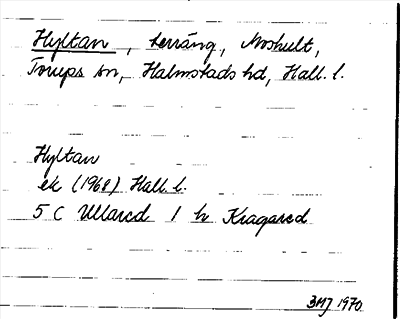 Hyltan, terräng, Moshult,
Torups sn, Halmstads hd, Hall. l.
Hyltan
ek (1968) Hall. l.
5 C Ullared 1 h Kragared
1970